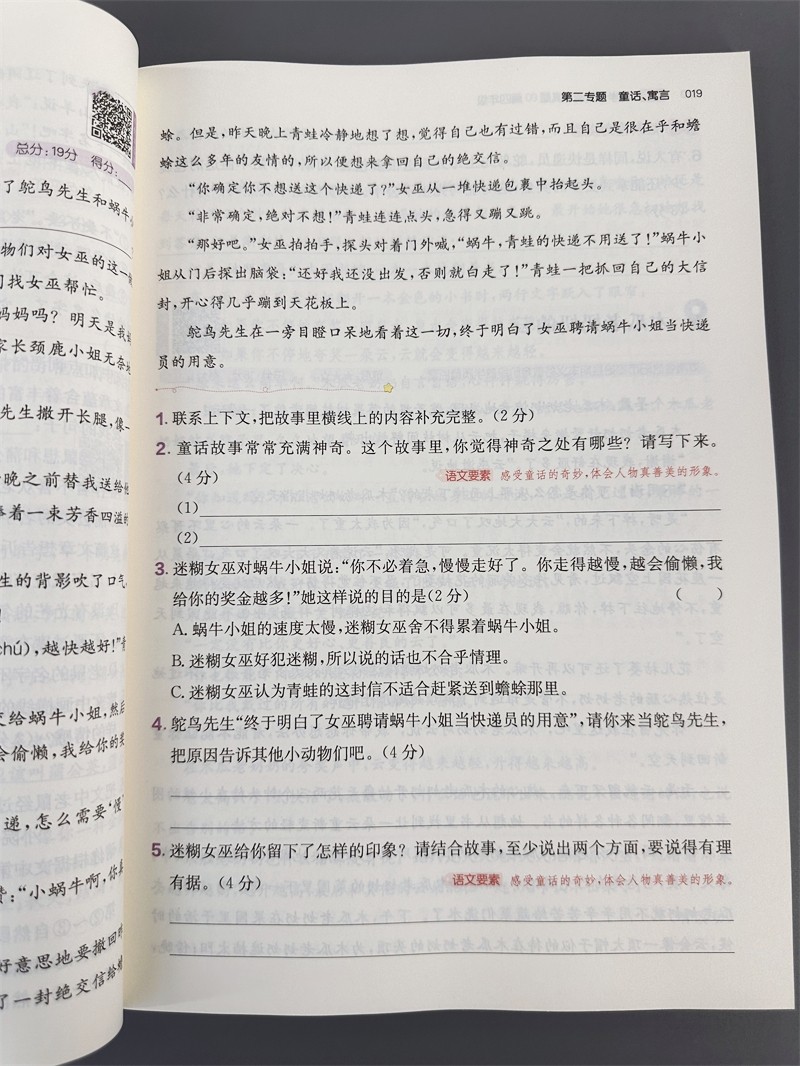 总分:19分 得分:
了鸵鸟先生和蜗牛
物们对女巫的这一
找女巫帮忙。
妈妈吗?明天是我
家长颈鹿小姐无奈地
先生撒开长腿,像一
晚之前替我送给他
捧着一束芳香四溢的
生的背影吹了口气
chú),越快越好!”
交给蜗牛小姐,然后
会偷懒,我给你的奖
递,怎么需要‘慢
“小蜗牛啊,你
好意思地要撤回昨
了一封绝交信给
第二专题 童话、寓言 019
蜍。但是,昨天晚上青蛙冷静地想了想,觉得自己也有过错,而且自己是很在乎和蟾
蜍这么多年的友情的,所以便想来拿回自己的绝交信。
“你确定你不想送这个快递了?”女巫从一堆快递包裹中抬起头。
“非常确定,绝对不想!”青蛙连连点头,急得又蹦又跳。
“那好吧。”女巫拍拍手,探头对着门外喊,“蜗牛,青蛙的快递不用送了!”蜗牛小
姐从门后探出脑袋:“还好我还没出发,否则就白走了!”青蛙一把抓回自己的大信
封,开心得几乎蹦到天花板上。
鸵鸟先生在一旁目瞪口呆地看着这一切,终于明白了女巫聘请蜗牛小姐当快递
员的用意。
1. 联系上下文,把故事里横线上的内容补充完整。(2分)
2. 童话故事常常充满神奇。这个故事里,你觉得神奇之处有哪些?请写下来。
(4分) 语文要素 感受童话的奇妙,体会人物真善美的形象。
(1)
(2)
3. 迷糊女巫对蜗牛小姐说:“你不必着急,慢慢走好了。你走得越慢,越会偷懒,我
给你的奖金越多!”她这样说的目的是(2分) ( )
A. 蜗牛小姐的速度太慢,迷糊女巫舍不得累着蜗牛小姐。
B. 迷糊女巫好犯迷糊,所以说的话也不合乎情理。
C. 迷糊女巫认为青蛙的这封信不适合赶紧送到蟾蜍那里。
4. 鸵鸟先生“终于明白了女巫聘请蜗牛小姐当快递员的用意”,请你来当鸵鸟先生,
把原因告诉其他小动物们吧。(4分)
5. 迷糊女巫给你留下了怎样的印象?请结合故事,至少说出两个方面,要说得有理
有据。(4分) 语文要素 感受童话的奇妙,体会人物真善美的形象。